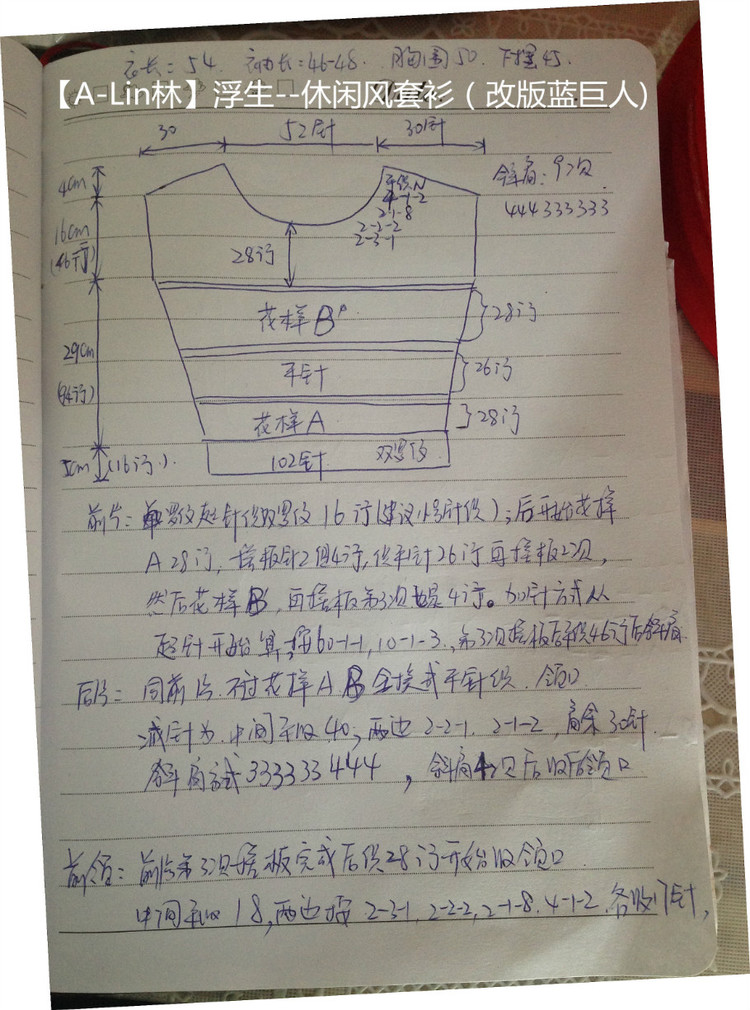 衣长=54. 衣袖长=46-48. 胸围50. 下摆45.
【A-Lin林】浮生--休闲风套衫（改版蓝巨人)
30 52针 30针
4cm
平织N
4-1-2
2-1-8
2-2-2
2-3-1
斜肩: 9次
444333333
16cm
(46行)
28行
花样B
28行
29cm
(94行)
平针
26行
花样A
28行
5cm (16行).
102针 双罗纹
前片: 罗纹起针织双罗纹16行(建议小号针织); 后开始花样
A 28行, 搓板针2圈4行, 织平针26行再搓板2次,
然后花样B, 再搓板第3次也是4行。加针方式从
起针开始算, 按60-1-1, 10-1-3, 第3次搓板后平织46行后斜肩.
后片: 同前片. 不过花样A B全换成平针织. 领口
减针为. 中间平收40, 两边 2-2-1. 2-1-2, 肩余30针.
斜肩式333333444 , 斜肩4次后收后领口
前领: 前片第3次搓板完成后织28行开始收领口.
中间平收18, 两边按 2-3-1. 2-2-2, 2-1-8. 4-1-2. 各收17针,